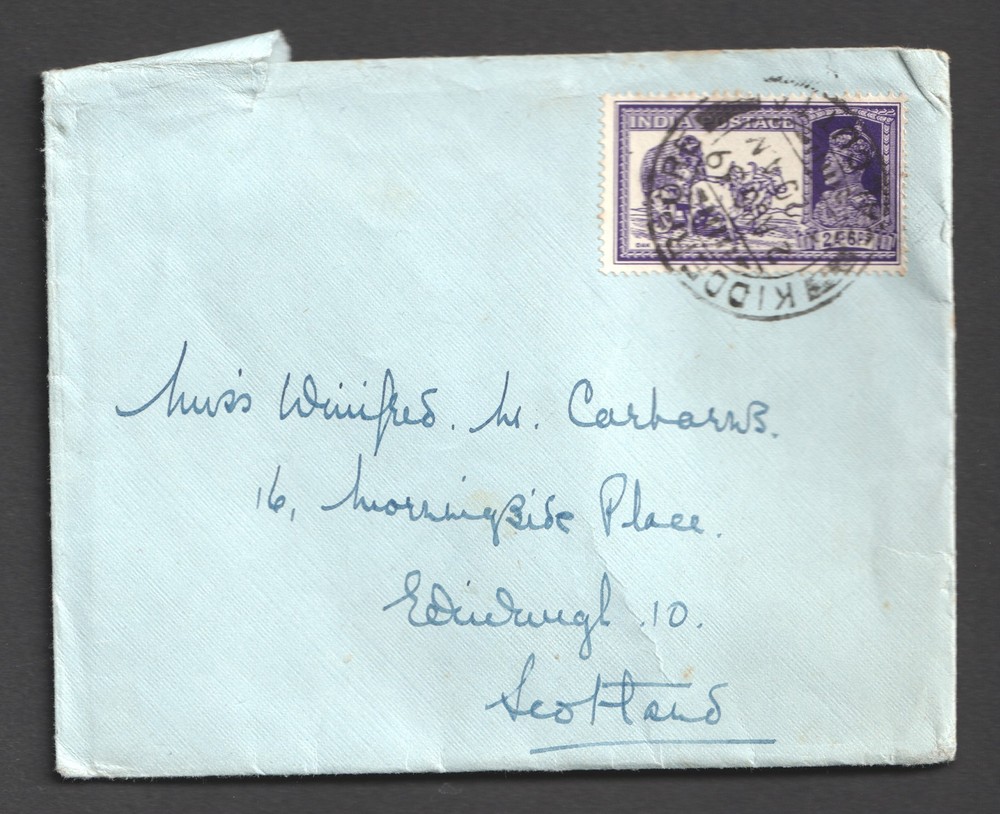 INDIA POSTAGE
2As6Ps
KIDDERPORE
Miss Winifred. M. Carbarns.
16, Morningside Place.
Edinburgh .10.
Scotland